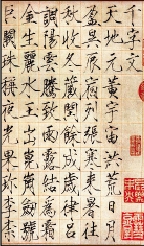 千字文
天地元黃宇宙洪荒日月
盈昃辰宿列張寒來暑往
秋收冬藏閏餘成歲律呂
調陽雲騰致雨露結爲霜
金生麗水玉出崑崗劒號
巨闕珠稱夜光果珍李柰